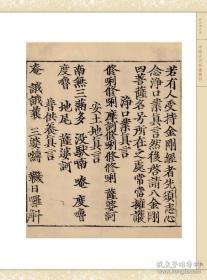 若有人受持金剛經者先須志心
念淨口業真言然後啓請八金剛
四菩薩名号所在之處常當擁護
淨口業真言
修唎修唎摩訶修唎修修唎薩婆訶
安土地真言
南無三滿多 没馱喃 唵 度嚕
度嚕 地尾 薩婆訶
普供養真言
唵 誐誐曩 三婆嚩 韈日囉斛